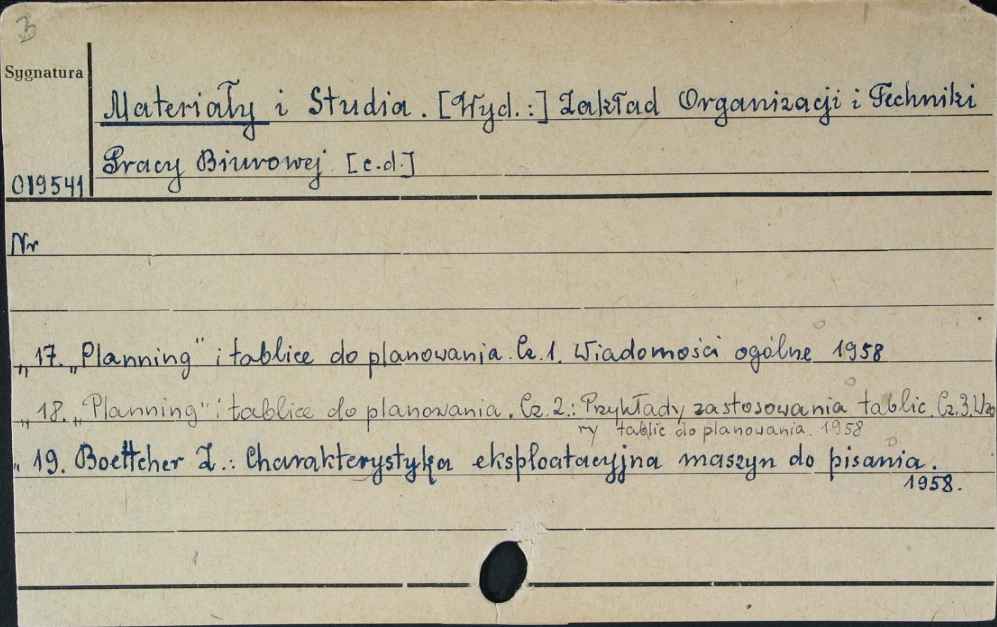 B
Sygnatura
Materiały i Studia. [Wyd.:] Zakład Organizacji i Techniki
Pracy Biurowej [c.d.]
019541
Nr
„ 17. „Planning" i tablice do planowania. Cz. 1. Wiadomości ogólne 1958
„ 18. „Planning" i tablice do planowania. Cz. 2.: Przykłady zastosowania tablic. Cz. 3. Wzo
ry tablic do planowania. 1958
„ 19. Boettcher Z.: Charakterystyka eksploatacyjna maszyn do pisania.
1958.